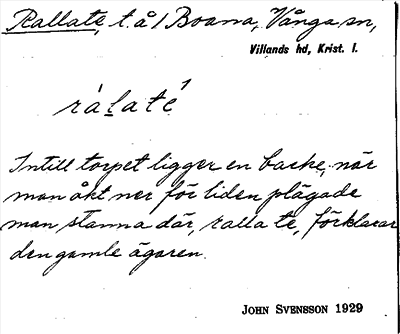 Rallate, t. å / Boarna, Vånga sn,
Villands hd, Krist. l.
rálaté
Intill torpet ligger en backe, när
man åkt ner för liden plägade
man stanna där, ralla te, förklarar
den gamle ägaren.
JOHN SVENSSON 1929